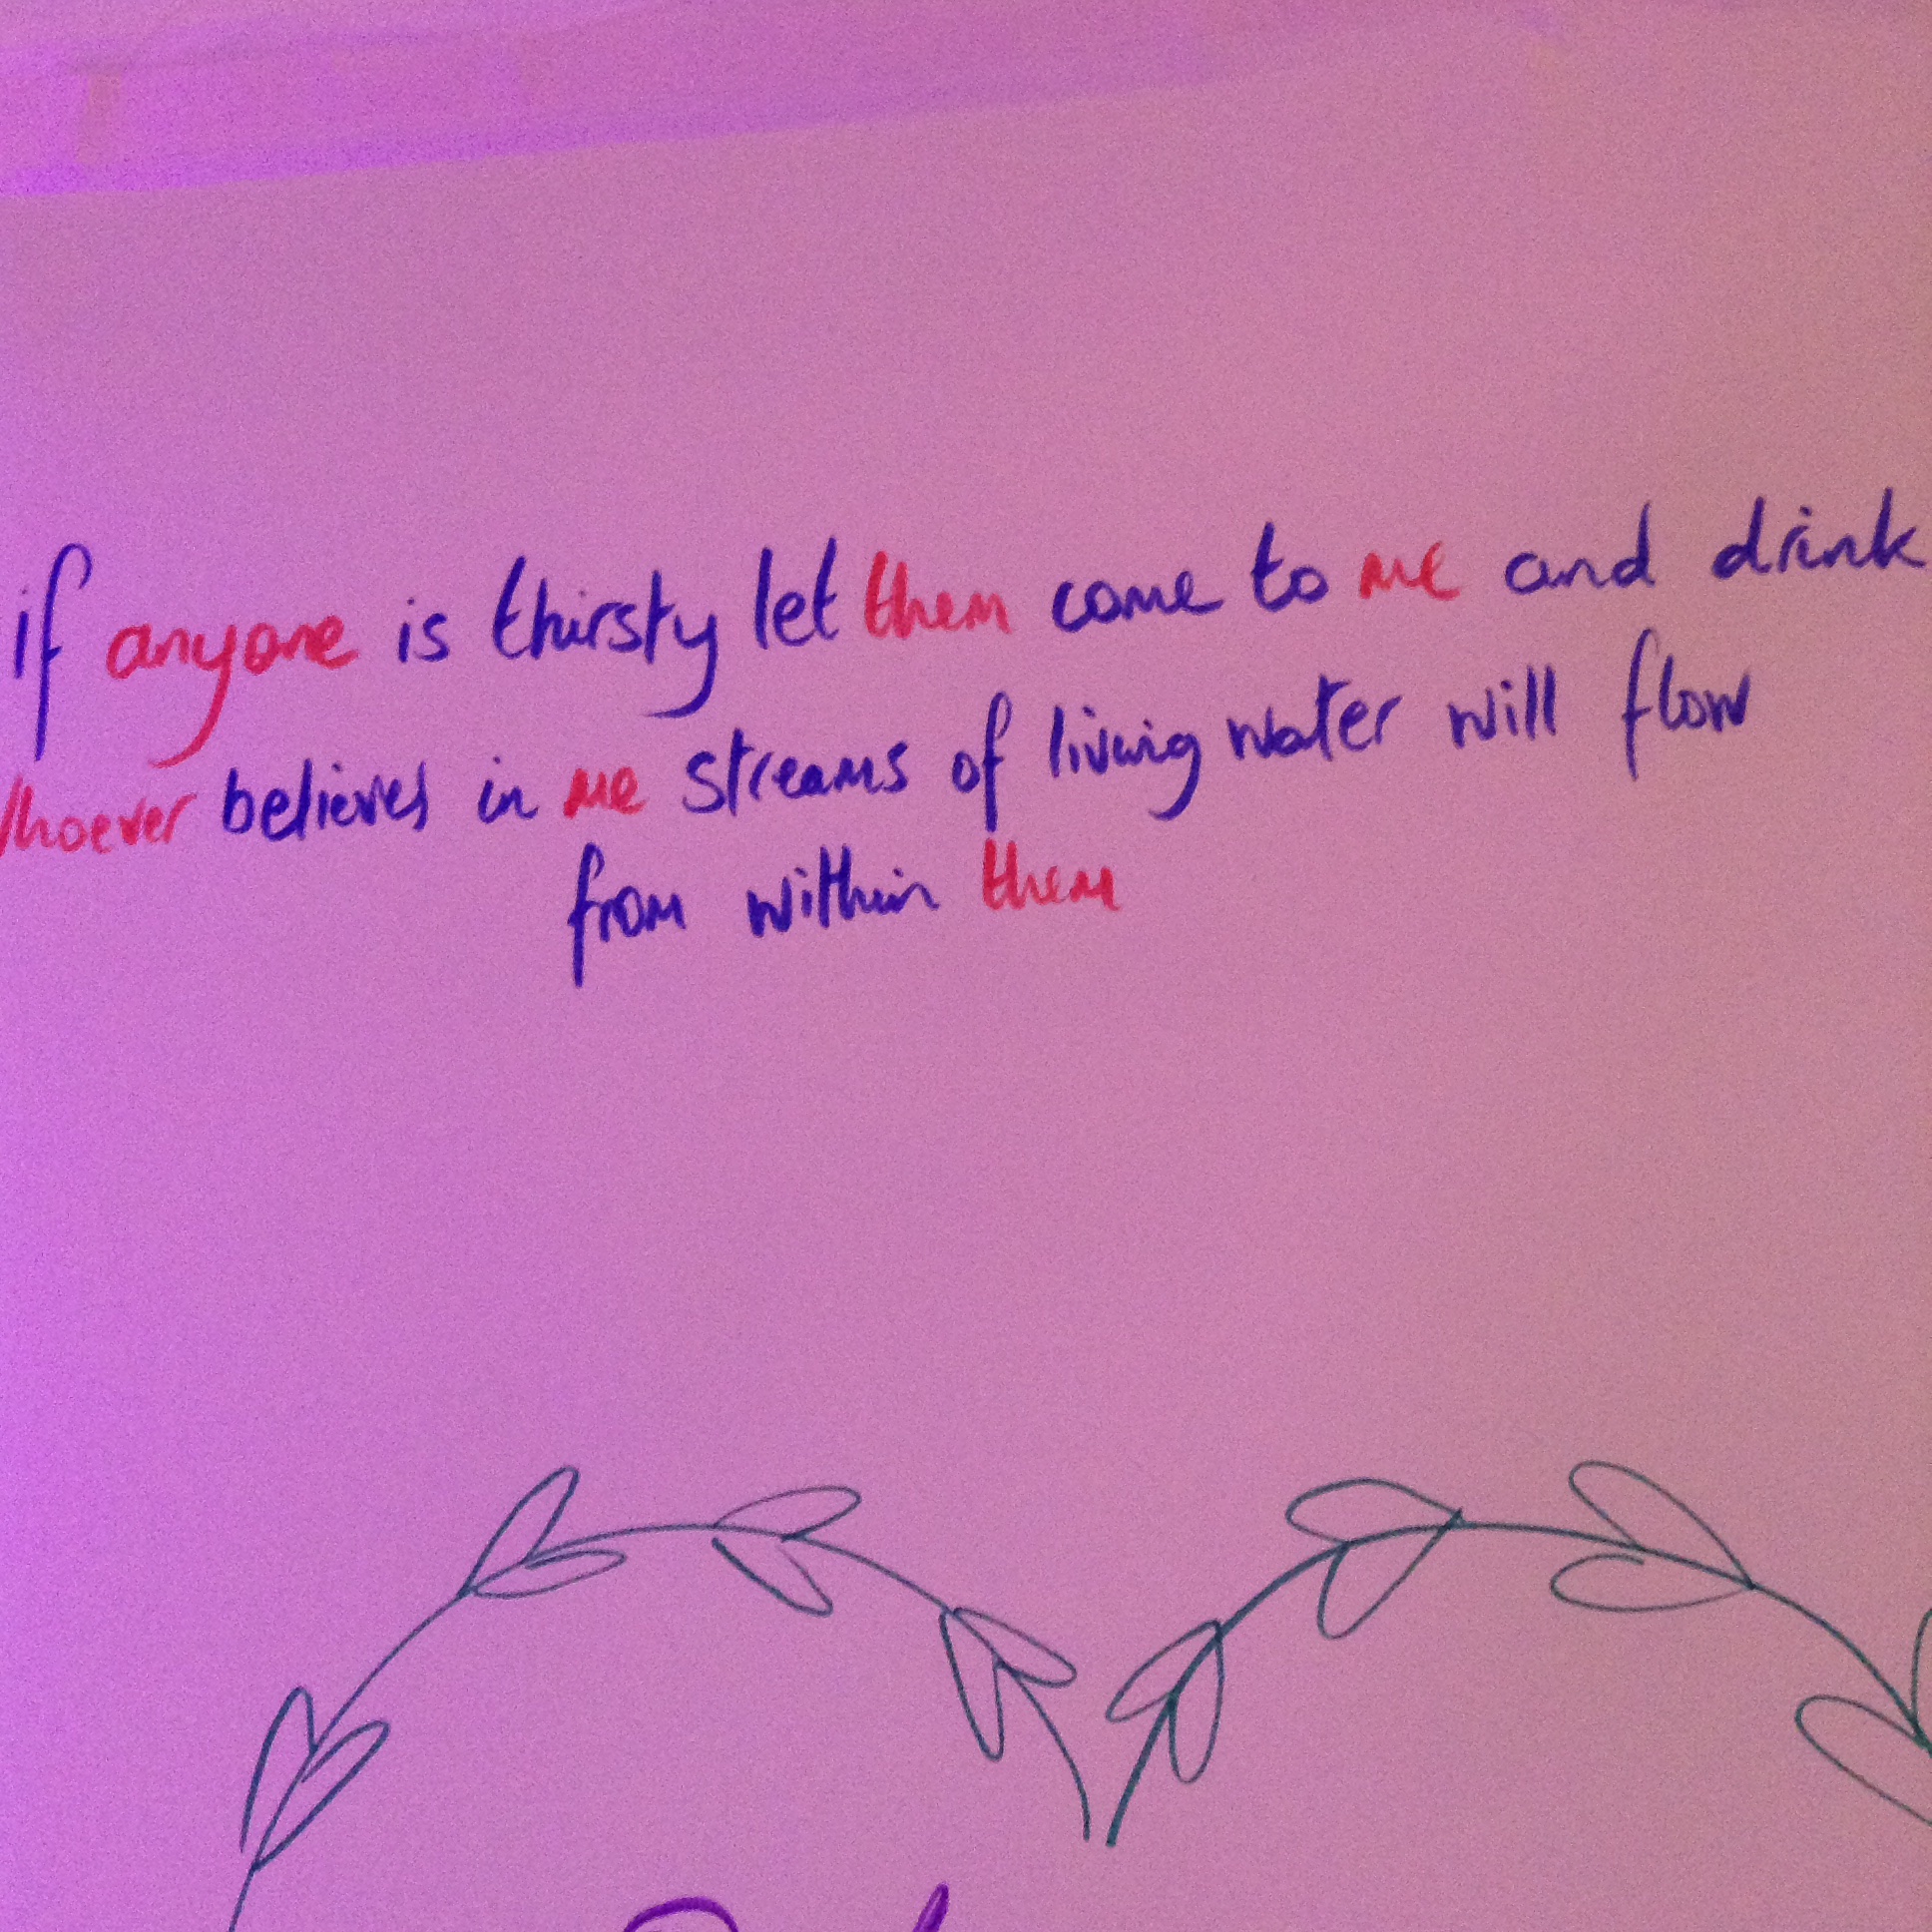 if anyone is thirsty let them come to me and drink
Whoever believes in me streams of living water will flow
from within them